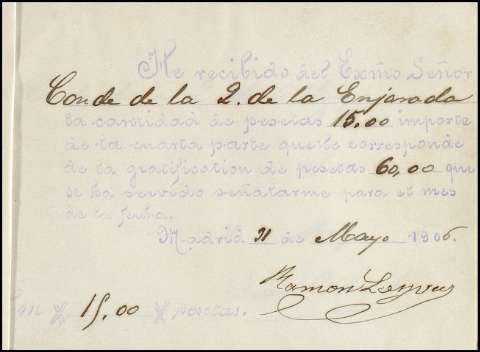 He recibido del Excmo Señor
Conde de la 2. de la Enjarada
la cantidad de pesetas 15.00 importe
de la cuarta parte que le corresponde
de la gratification de pesetas 60,00 que
se ha servido señalarme para el mes
de la fecha.
Madrid 31 de Mayo 1906.
Ramon
Son # 15.00 # pesetas.